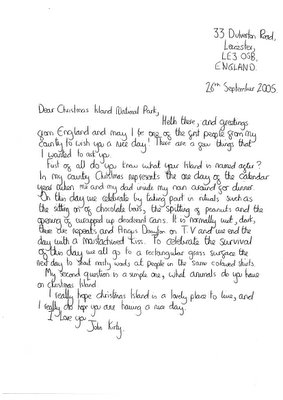 33 Dulverton Road,
Leicester,
LE3 0SB,
ENGLAND.
26th September 2005.
Dear Christmas Island National Park,
Hello there, and greetings
from England and may I be one of the first people from my
country to wish you a nice day! There are a few things that
I wanted to ask you.
First of all do you know what your Island is named after?
In my country Christmas represents the one day of the calendar
year when me and my dad invite my nan around for dinner.
On this day we celebrate by taking part in rituals such as
the sitting on of chocolate, the spitting of peanuts and the
opening of wrapped up deodorant cans. It is normally wet, dark,
there are repeats and Angus Deayton on T.V and we end the
day with a moustachioed kiss. To celebrate the survival
of this day we all go to a rectangular grass surface the
next day to shout nasty words at people in the same coloured shirts.
My second question is a simple one, what animals do you have
on christmas Island
I really hope christmas Island is a lovely place to live, and
I really do hope you are having a nice day.
I love you
John Kirby.